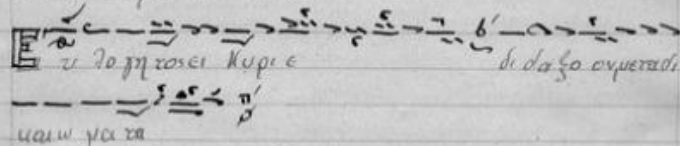 Ευ λο γη τος ει Κυρι ε δι δα ξο ον με τα δι
και ω μα τα